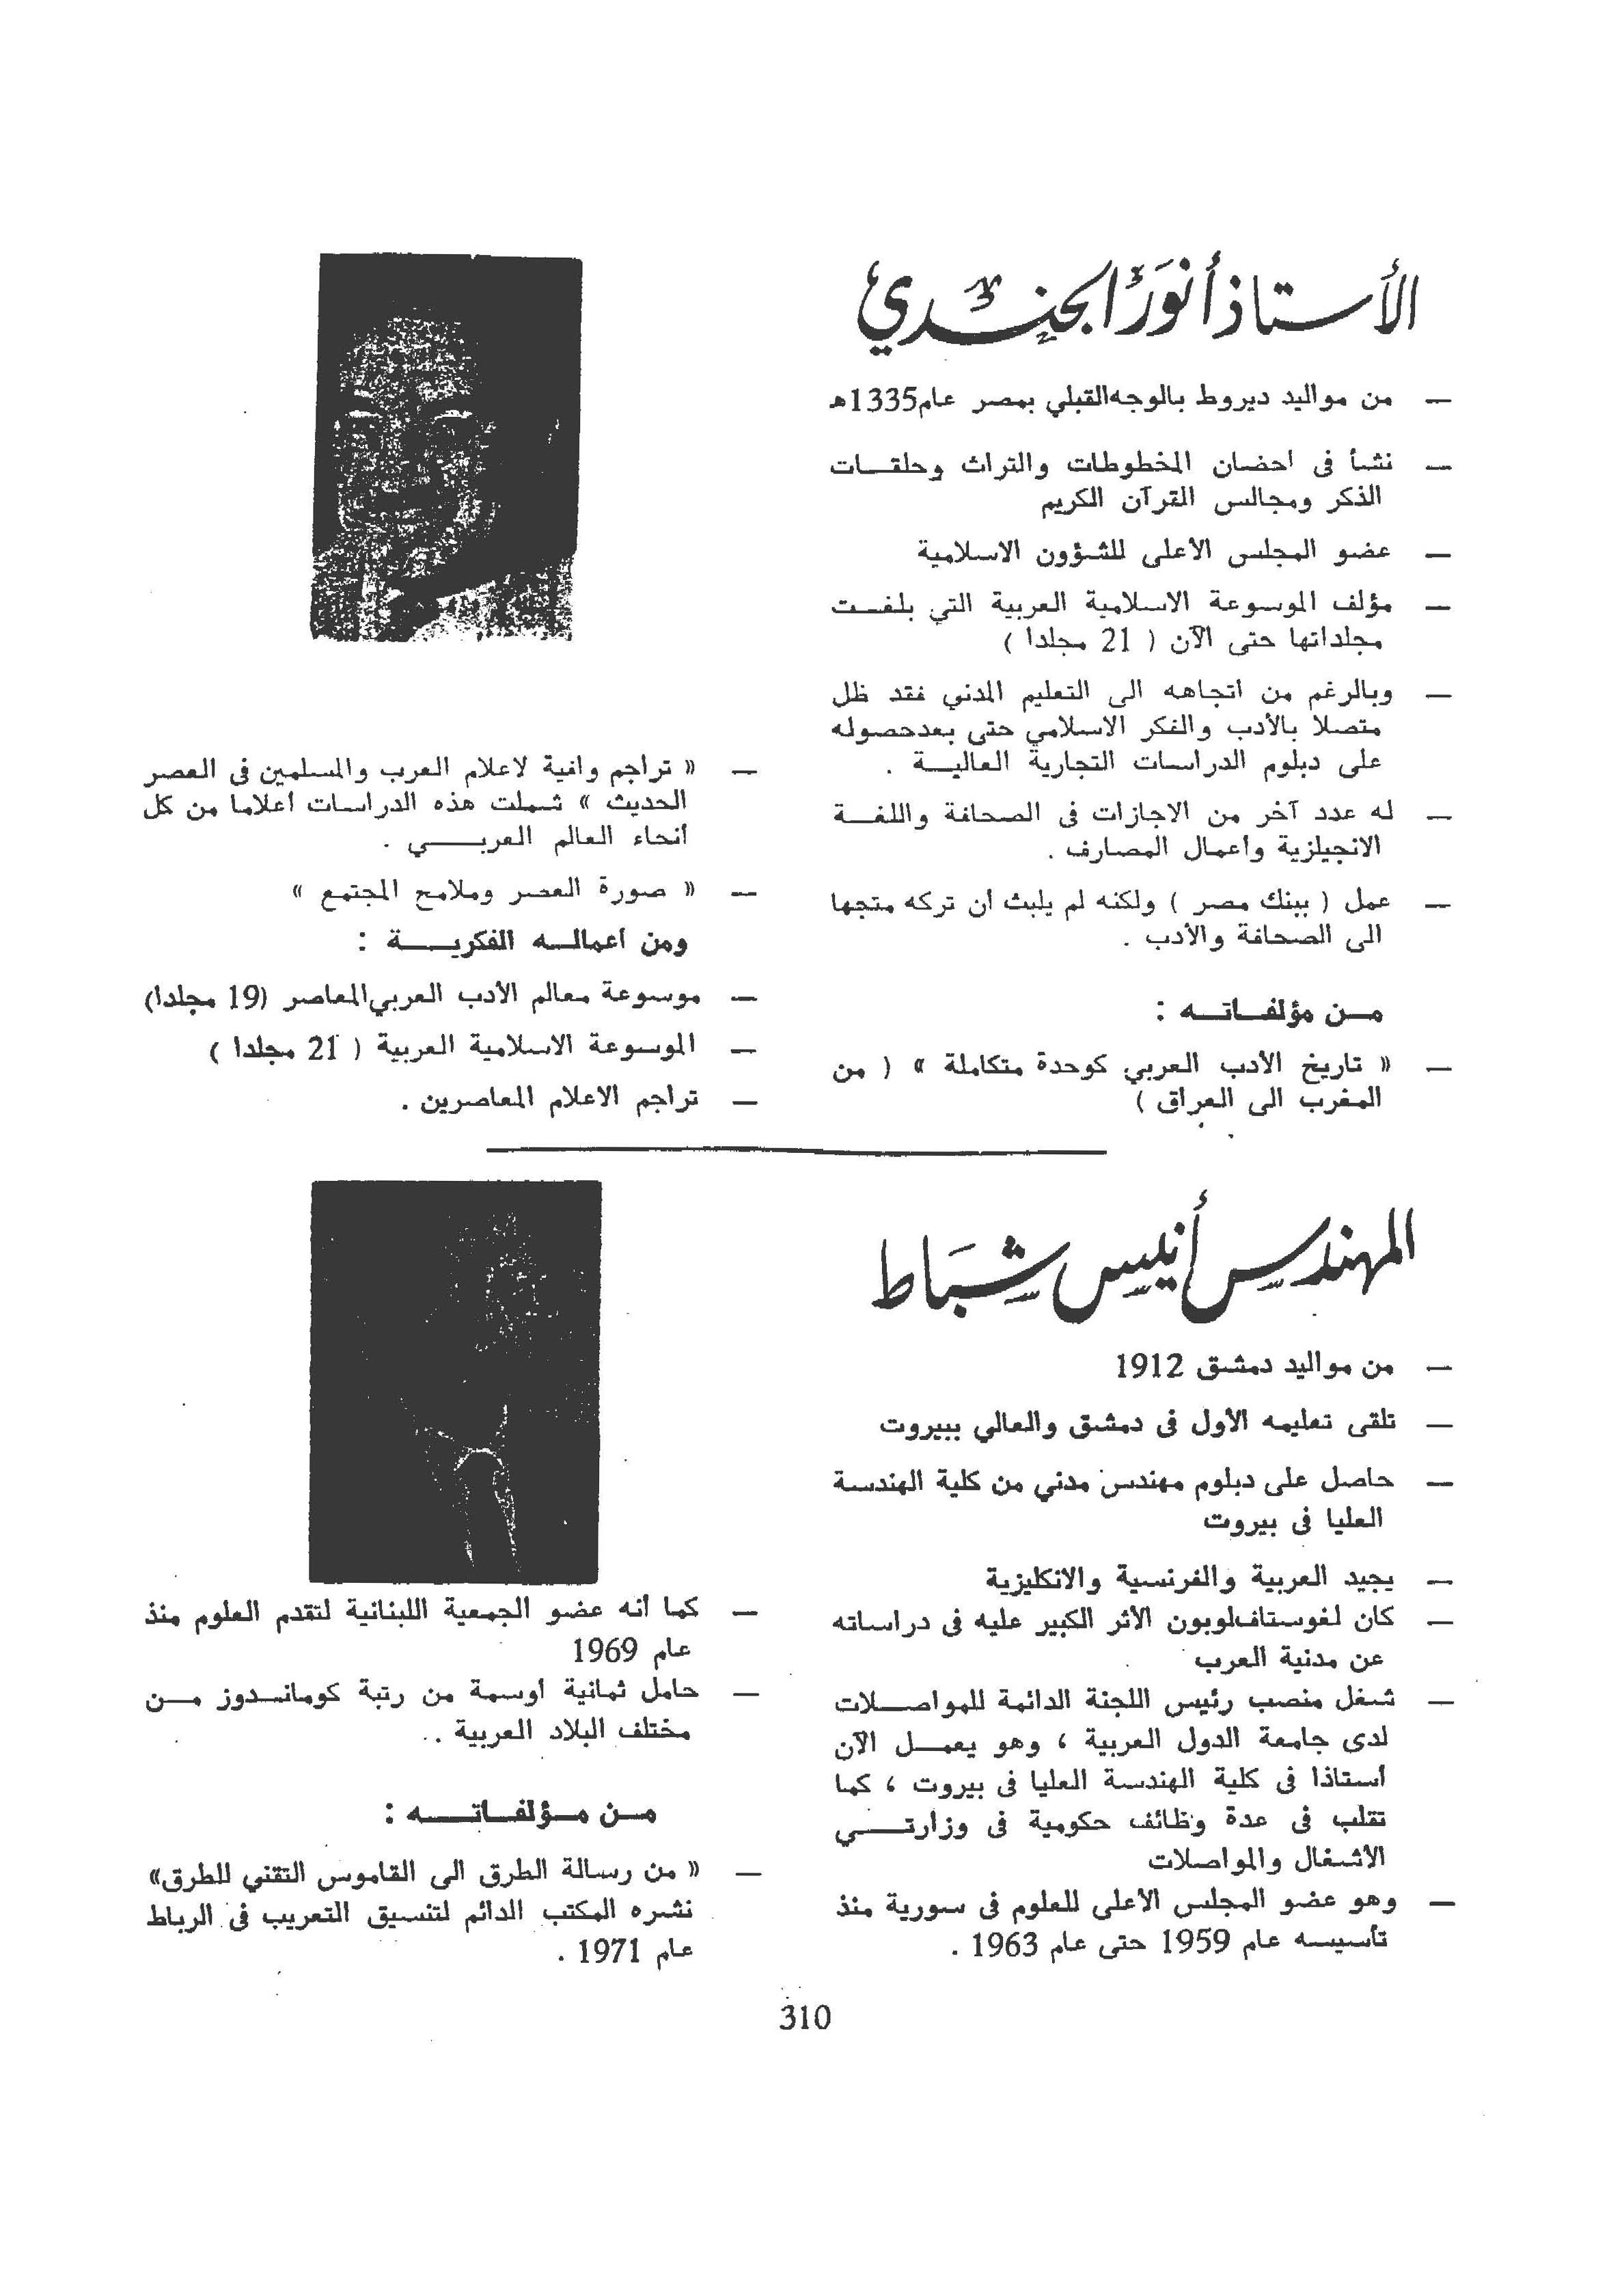 الأستاذ أنور الجندي
— من مواليد ديروط بالوجه القبلي بمصر عام 1335هـ
— نشأ فى احضان المخطوطات والتراث وحلقات
الذكر ومجالس القرآن الكريم
— عضو المجلس الأعلى للشؤون الاسلامية
— مؤلف الموسوعة الاسلامية العربية التي بلغت
مجلداتها حتى الآن ( 21 مجلدا )
— وبالرغم من اتجاهه الى التعليم المدني فقد ظل
متصلا بالأدب والفكر الاسلامي حتى بعد حصوله
على دبلوم الدراسات التجارية العالية .
— له عدد آخر من الاجازات فى الصحافة واللغة
الانجيلزية وأعمال المصارف .
— عمل ( ببنك مصر ) ولكنه لم يلبث ان تركه متجها
الى الصحافة والأدب .
من مؤلفاته :
— « تاريخ الأدب العربي كوحدة متكاملة » ( من
المغرب الى العراق )
— « تراجم وافية لاعلام العرب والمسلمين فى العصر
الحديث » شملت هذه الدراسات أعلاما من كل
أنحاء العالم العربي .
— « صورة العصر وملامح المجتمع »
ومن اعماله الفكرية :
— موسوعة معالم الأدب العربي المعاصر (19 مجلدا)
— الموسوعة الاسلامية العربية ( 21 مجلدا )
— تراجم الاعلام المعاصرين .
المهندس أنيس شباط
— من مواليد دمشق 1912
— تلقى تعليمه الأول فى دمشق والعالي ببيروت
— حاصل على دبلوم مهندس مدني من كلية الهندسة
العليا فى بيروت
— يجيد العربية والفرنسية والانكليزية
— كان لغوستاف لوبون الأثر الكبير عليه فى دراساته
عن مدنية العرب
— شغل منصب رئيس اللجنة الدائمة للمواصلات
لدى جامعة الدول العربية ، وهو يعمل الآن
أستاذا فى كلية الهندسة العليا فى بيروت ، كما
تقلب فى عدة وظائف حكومية فى وزارتي
الأشغال والمواصلات
— وهو عضو المجلس الأعلى للعلوم فى سورية منذ
تأسيسه عام 1959 حتى عام 1963 .
— كما أنه عضو الجمعية اللبنانية لتقدم العلوم منذ
عام 1969
— حامل ثمانية أوسمة من رتبة كوماندوز من
مختلف البلاد العربية . .
من مؤلفاته :
— « من رسالة الطرق الى القاموس التقني للطرق»
نشره المكتب الدائم لتنسيق التعريب فى الرباط
عام 1971 .
310